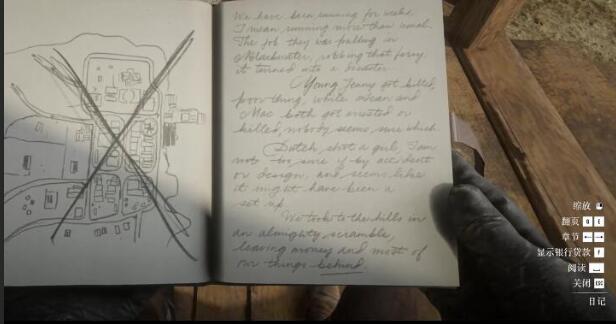 We have been running for weeks.
I mean running more than usual.
The job they was pulling in
Blackwater, robbing that ferry,
it turned into a disaster.
Young Jenny got killed,
poor thing, while Sean and
Mac both got arrested or
killed, nobody seems sure which.
Dutch shot a girl, I am
not too sure if by accident
or design, and seems like
it might have been a
set up.
We took to the hills in
an almighty scramble,
leaving money and most of
our things behind.
缩放
翻页 Q E
章节
显示银行贷款
阅读
关闭 ESC
日记